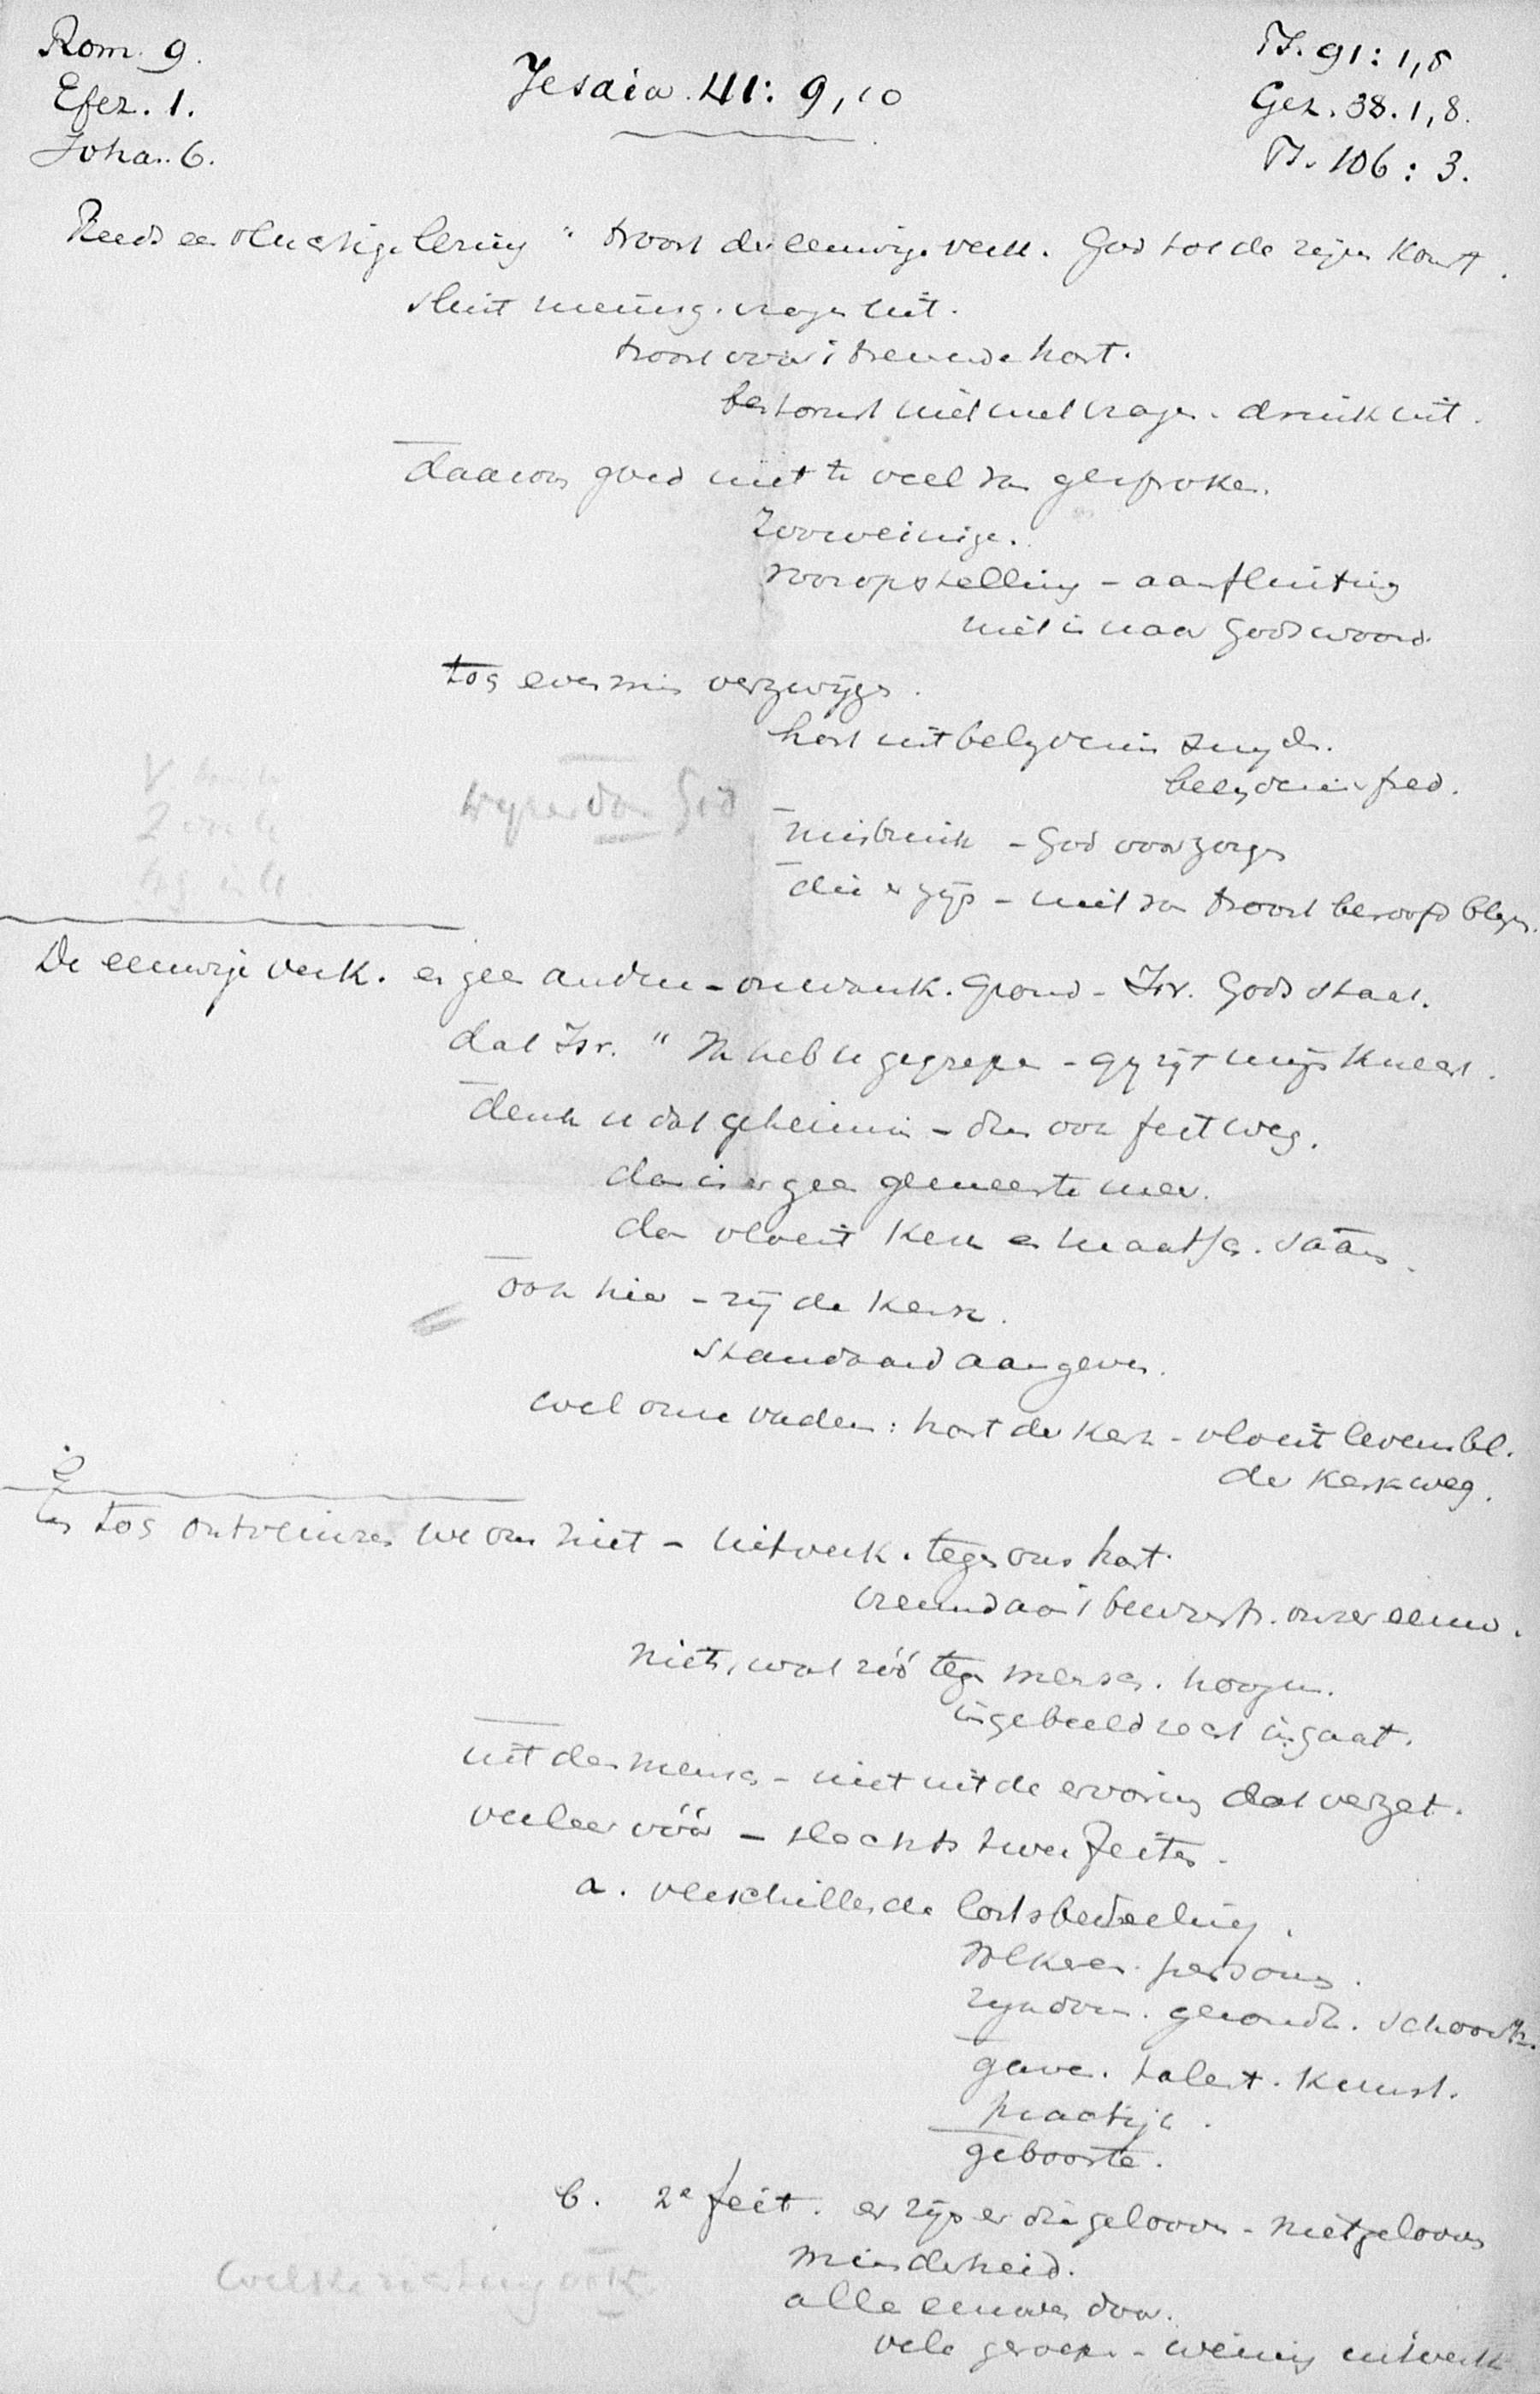 Rom. 9.
Efez. 1.
Joha.. 6.
Jesaia. 41: 9, 10
Ps. 91: 1, 8
Gez. 38. 1, 8.
Ps. 106: 3.
Reeds een vluchtige lezing " troost der eeuwige verk. God tot de zijnen komt.
sluit menig. vragen uit.
troost voor 't treurende hart.
bestormt niet met vragen. drinkt uit.
daarom goed niet te veel van gesproken.
Zoo weinige.
vooropstelling - aanfluiting
niet is naar Gods woord.
toch evenmin verzwijgen.
hart uit belydenis snyden.
belydenis pred.
misbruik - God voor zorgen
die er zijn - niet van troost beroofd blijven.
De eeuwige verk. en geen andere - onwank. grond - Isr. Gods staat.
dat Isr. " Ik heb u gegrepen - gy zijt mijn knecht.
denk u dat geheimen - dan ook feit weg.
dan is er geen gemeente meer.
dan vloeit kerk en maatsch. saam.
ook hier - zij de kerk.
standaard aangeven.
wel onze vaderen: hart der kerk - vloeit levensbl.
der kerk weg.
En toch ontveinzen we ons niet - uitverk. tegen ons hart.
vreemd aan 't bewustz. onzer eeuw.
niets, wat zóó tegen mensch. hoogm.
ingebeeld recht ingaat.
uit den mensch - niet uit de ervaring dat verzet.
veeleer vóór - slechts twee feiten.
a. verschillende lotsbedeeling.
Volkeren. persoon.
rijkdom. gezondh. schoonh.
gave. talent. kunst.
practijk.
geboorte.
b. 2e feit. er zijn er die gelooven - niet gelooven
minderheid.
alle eeuwen door.
vele geroep. - weinig uitverk